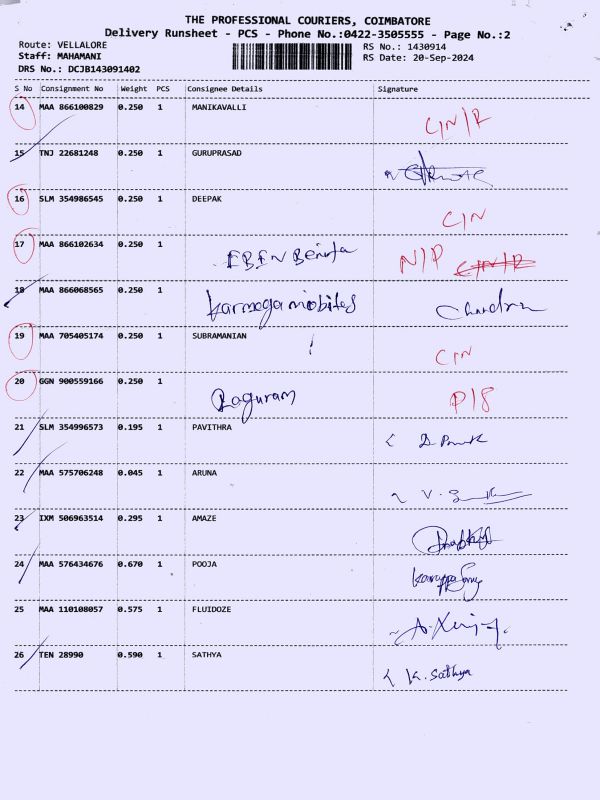 THE PROFESSIONAL COURIERS, COIMBATORE
Delivery Runsheet - PCS - Phone No.:0422-3505555 - Page No.:2
Route: VELLALORE
RS No.: 1430914
Staff: MAHAMANI
RS Date: 20-Sep-2024
DRS No.: DCJB143091402
S No Consignment No Weight PCS Consignee Details Signature
14 MAA 866100829 0.250 1 MANIKAVALLI C/N/R
15 TNJ 22681248 0.250 1 GURUPRASAD
16 SLM 354986545 0.250 1 DEEPAK C/N
17 MAA 866102634 0.250 1 EBEN Benita N/P C/N/R
18 MAA 866068565 0.250 1 Karmega mobiles Chandra
19 MAA 705405174 0.250 1 SUBRAMANIAN C/N
20 GGN 900559166 0.250 1 Raguram P/S
21 SLM 354996573 0.195 1 PAVITHRA
22 MAA 575706248 0.045 1 ARUNA
23 IXM 506963514 0.295 1 AMAZE
24 MAA 576434676 0.670 1 POOJA
25 MAA 110108057 0.575 1 FLUIDOZE
26 TEN 28990 0.590 1 SATHYA K. Sathya